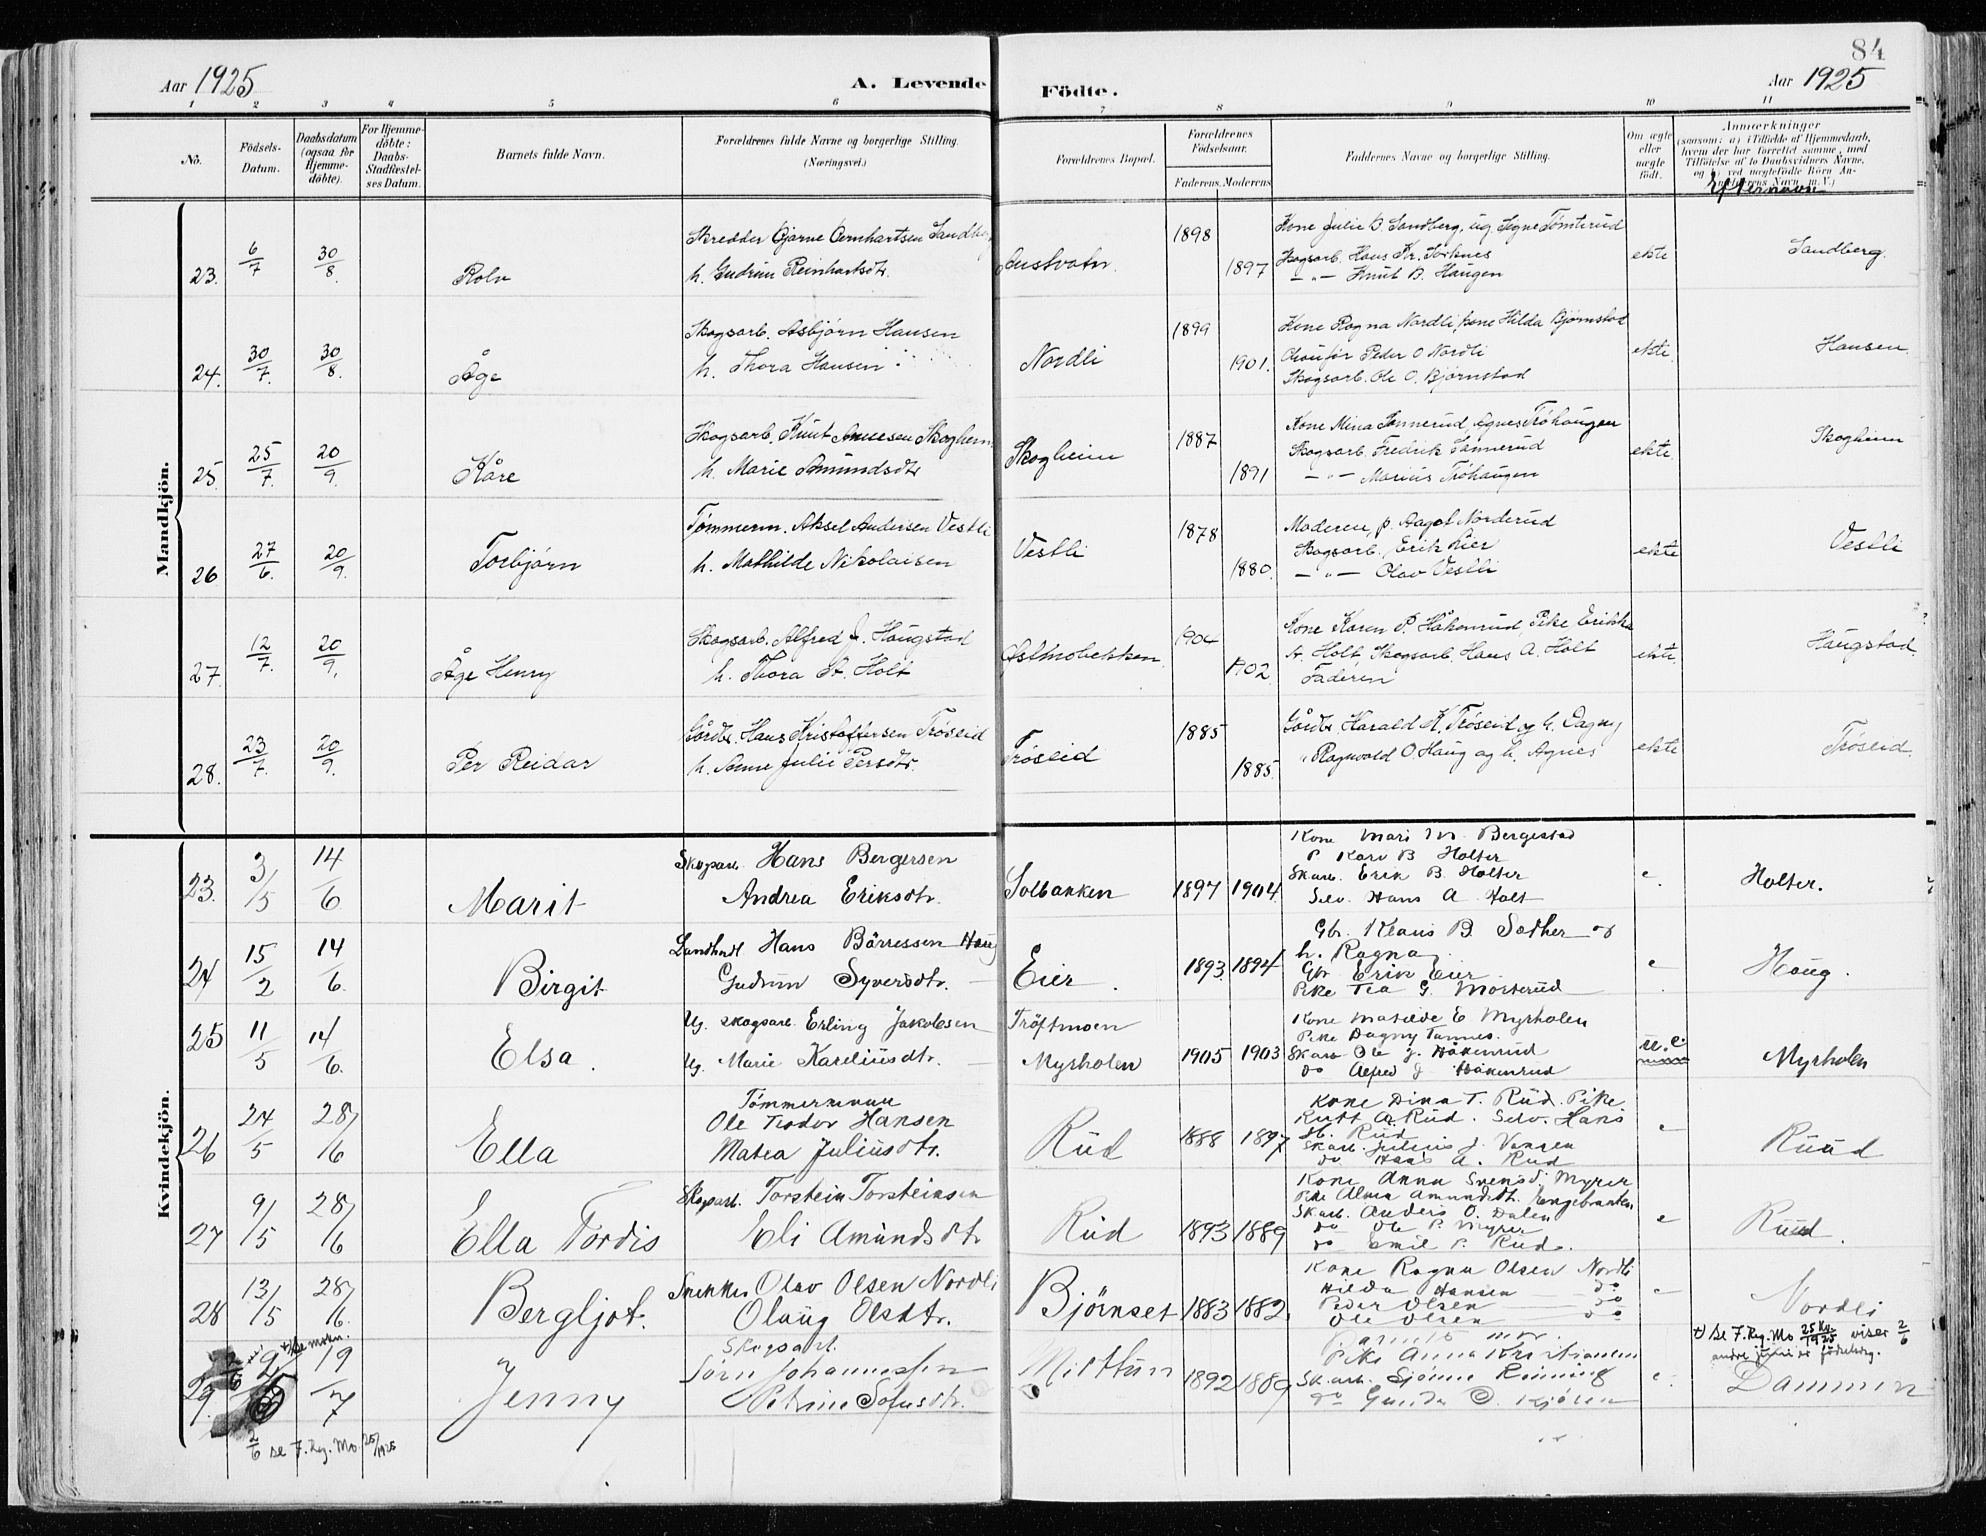 84
Aar 1925
A. Levende Födte.
Aar 1925
1 2 3 4 5 6 7 8 9 10 11
No.
Födsels-Datum.
Daabsdatum (ogsaa for Hjemmedöbte).
For Hjemmedöbte: Daabs-Stadfæstelses Datum.
Barnets fulde Navn.
Forældrenes fulde Navne og borgerlige Stilling.
(Næringsvei.)
Forældrenes Bopæl.
Forældrenes Födselsaar.
Faderens. Moderens
Faddernes Navne og borgerlige Stilling.
Om ægte eller uægte födt.
Anmærkninger
(saasom: a) i Tilfælde af Hjemmedaab,
hvem der har forrettet samme, med
Tilföielse af to Daabsvidners Navne,
og b) ved uægtefödte Börn An-
Efternavn
Mandkjön.
23. 6/7 30/8 Rolv
Skredder Bjarne Bernhartsen Sandberg
h. Gudrun Reinhartsdtr.
Austvatn. 1898 1897
Kone Julie B. Sandberg, ug. Signe Tømterud
Skogsarb. Hans Kr. Torknes
— „ — Knut B. Haugen
ekte Sandberg.
24. 30/7. 30/8. Åge
Skogsarb. Asbjørn Hansen
h. Thora Hansen
Nordli 1899 1901.
Kone Ragna Nordli, kone Hilda Bjørnstad
Chauffør Peder O Nordli
Skogsarb. Ole O. Bjørnstad
ekte Hansen.
25. 25/7. 20/9. Kåre
Skogsarb. Knut Arnesen Skogheim
h. Marie Amundsdtr
Skogheim 1887 1891
Kone Mina Sønnerud, Agnes Trøhaugen
Skogsarb. Fredrik Sønnerud
— „ — Marius Trøhaugen
ekte. Skogheim
26 27/6. 20/9. Torbjørn
Tømmerm. Aksel Andersen Vestli
h. Mathilde Nikolaisen
Vestli 1878 1880.
Moderen, p. Aagot Norderud
Skogsarb. Erik Lier
— „ — Olav Vestli
ekte Vestli
27. 12/7. 20/9. Åge Henry
Skogsarb. Alfred J. Haugstad
h. Thora A. Holt
Østmobekken. 1904 1902.
Kone Karen P. Håkenrud, Pike Erikka
A. Holt Skogsarb. Hans A. Holt
Faderen
ekte. Haugstad.
28. 23/7. 20/9. Per Reidar
Gårdbr. Hans Kristoffersen Trøseid
h. Anne Julie Persdtr.
Trøseid 1885 1885.
Gårdbr. Harald K. Trøseid og h. Dagny
„ Ragnvald O Haug og h. Agnes
ekte Trøseid.
Kvindekjön.
23. 3/5 14/6 Marit
Skogsarb. Hans Bergersen
Andrea Eriksdtr.
Solbakken 1897 1904.
Kone Mari M. Bergestad
P Kari B Holter
Skarb. Erik B. Holter
Selv. Hans A Holt
e. Holter.
24 15/2 14/6. Birgit
Landhndl. Hans Börressen Haug
Gudrun Syversdtr.
Eier. 1893. 1894
Gbr. Klaus B. Sæther og
h. Ragna
Gbr. Erik Eier
Pike Tea G. Morterud
e Haug.
25 11/5 14/6. Elsa.
Ug. skogsarb. Erling Jakobsen
Ug. Marie Kareliusdtr.
Tröftmoen
Myrholen 1905 1903
Kone Matilde E Myrholen
Pike Dagny Tannes.
Skarb Ole J. Håkenrud
do Alfred J Håkenrud
u.e. Myrholen
26 24/5 28/6 Ella
Tömmermann
Ole Teodor Hansen
Matea Juliusdtr.
Rud 1888 1897
Kone Dina T. Rud. Pike
Rutt A. Rud. Selv. Hans
H. Rud
Skarb. Julius J. Vangen
do Hans A. Rud
e Ruud
27 9/5 28/6 Ella Tordis
Skogsarb. Torstein Torsteinsen
Eli Amundsdtr
Rud 1893 1889
Kone Anna Svensd. Myrer
Pike Alma Amundsdtr. Engebraaten
Skarb. Anders O. Dalen
do Ole P. Myrer
do Emil P. Rud.
e Ruud.
28 13/5 28/6. Bergljot.
Snekker Olav Olsen Nordli
Olaug Olsdtr.
Bjørnset 1883 1882.
Kone Ragna Olsen Nordli
Hilda Hansen — do
Peder Olsen — do
Ole Olsen do
e Nordli
29. 2/6 19/7 Jenny
Skogsarb.
Jörn Johannessen
Petrine Sofusdtr.
Mittun 1892 1889
Barnets mor.
Pike Anna Kristiansen
Skarb. Sjønne Rønning
do Gunder O. Kjösen
e. Dammen
x) Se F. Reg. No 25 Kv./1925 viser 2/6
andre junie er födselsdg.
2/6 se F. Reg. No. 25/1925